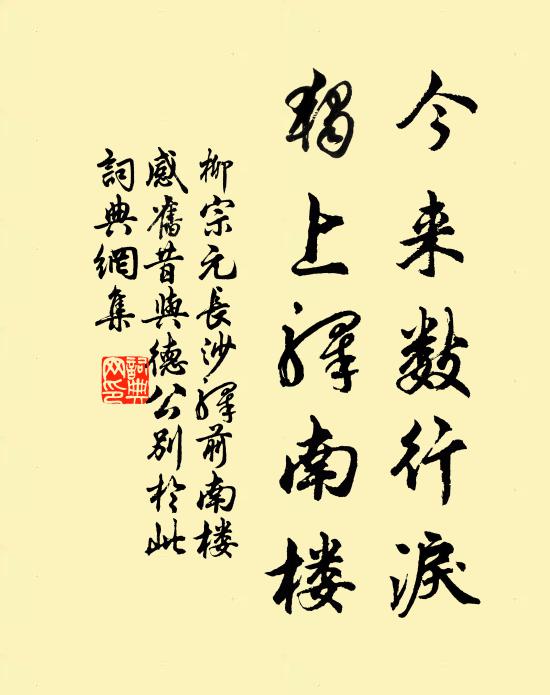 今来数行淚
独上驛南楼
柳宗元長沙驛前南楼
感舊昔與德公別於此
詞典網集
詞典网印